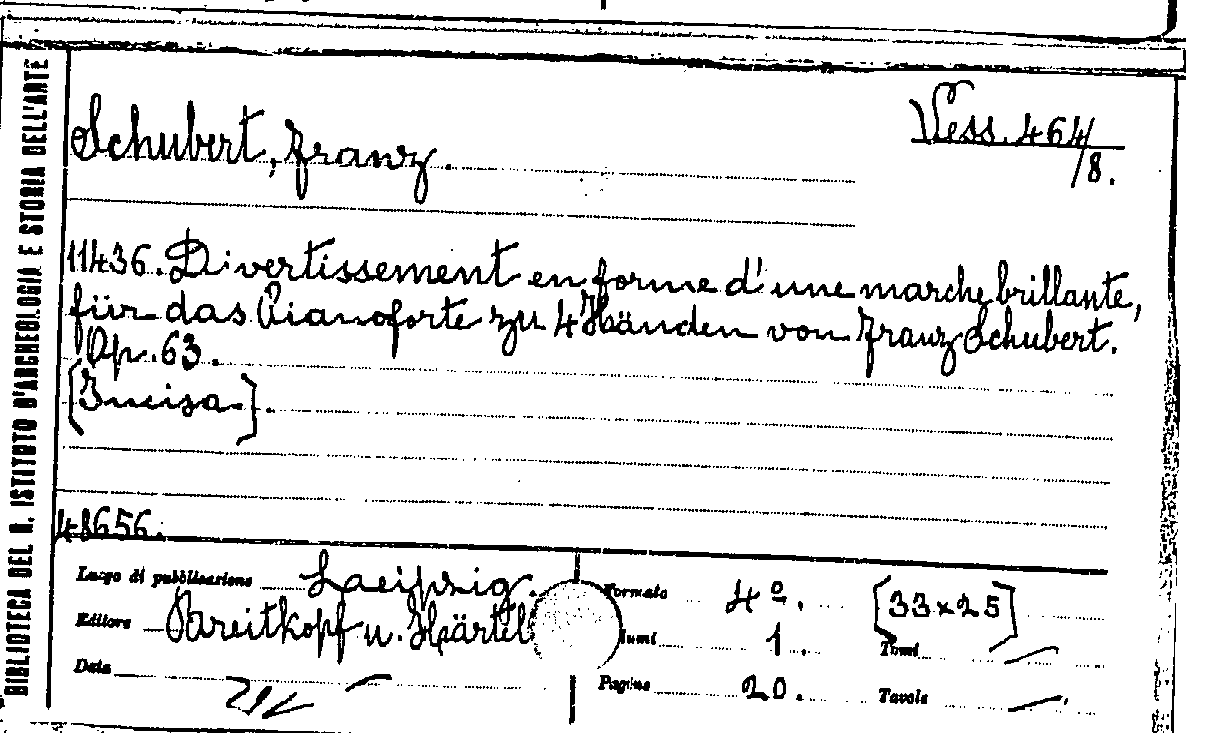 BIBLIOTECA DEL R. ISTITUTO D'ARCHEOLOGIA E STORIA DELL'ARTE
Schubert, Franz.
Vess. 464/8.
11436. Divertissement en forme d'une marche brillante,
für das Pianoforte zu 4 Händen von Franz Schubert.
Op. 63.
[Incisa].
48656.
Luogo di pubblicazione Laeipzig. Formato 4º. [33x25]
Editore Breitkopf u. Härtel Tomi 1. Tomi —
Data — Pagine 20. Tavole —.